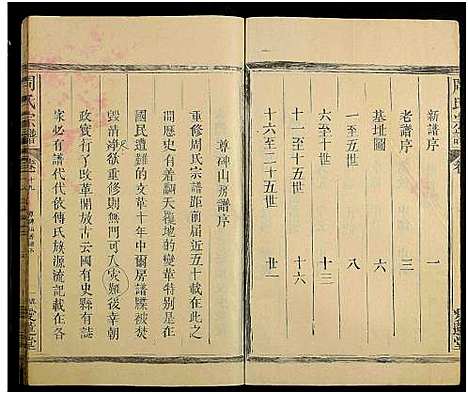 周氏宗譜
新譜序 一
老譜序 三
基址圖 六
一至五世 八
六至十世 十三
十一至十五世 十六
十六至二十五世 廿一
尊碑山房譜序
重修周氏宗譜距前屆近五十載在此之
間歷史有着翻天覆地的變革特別是在
國民遭難的文革十年中爾房譜牒被焚
毀清淨欲重修則無門可入災難後幸朝
政發生了改革開放古云國有史縣有誌
家必有譜代代敘傳氏族源流記載在各
周氏宗譜
卷十九
愛蓮堂